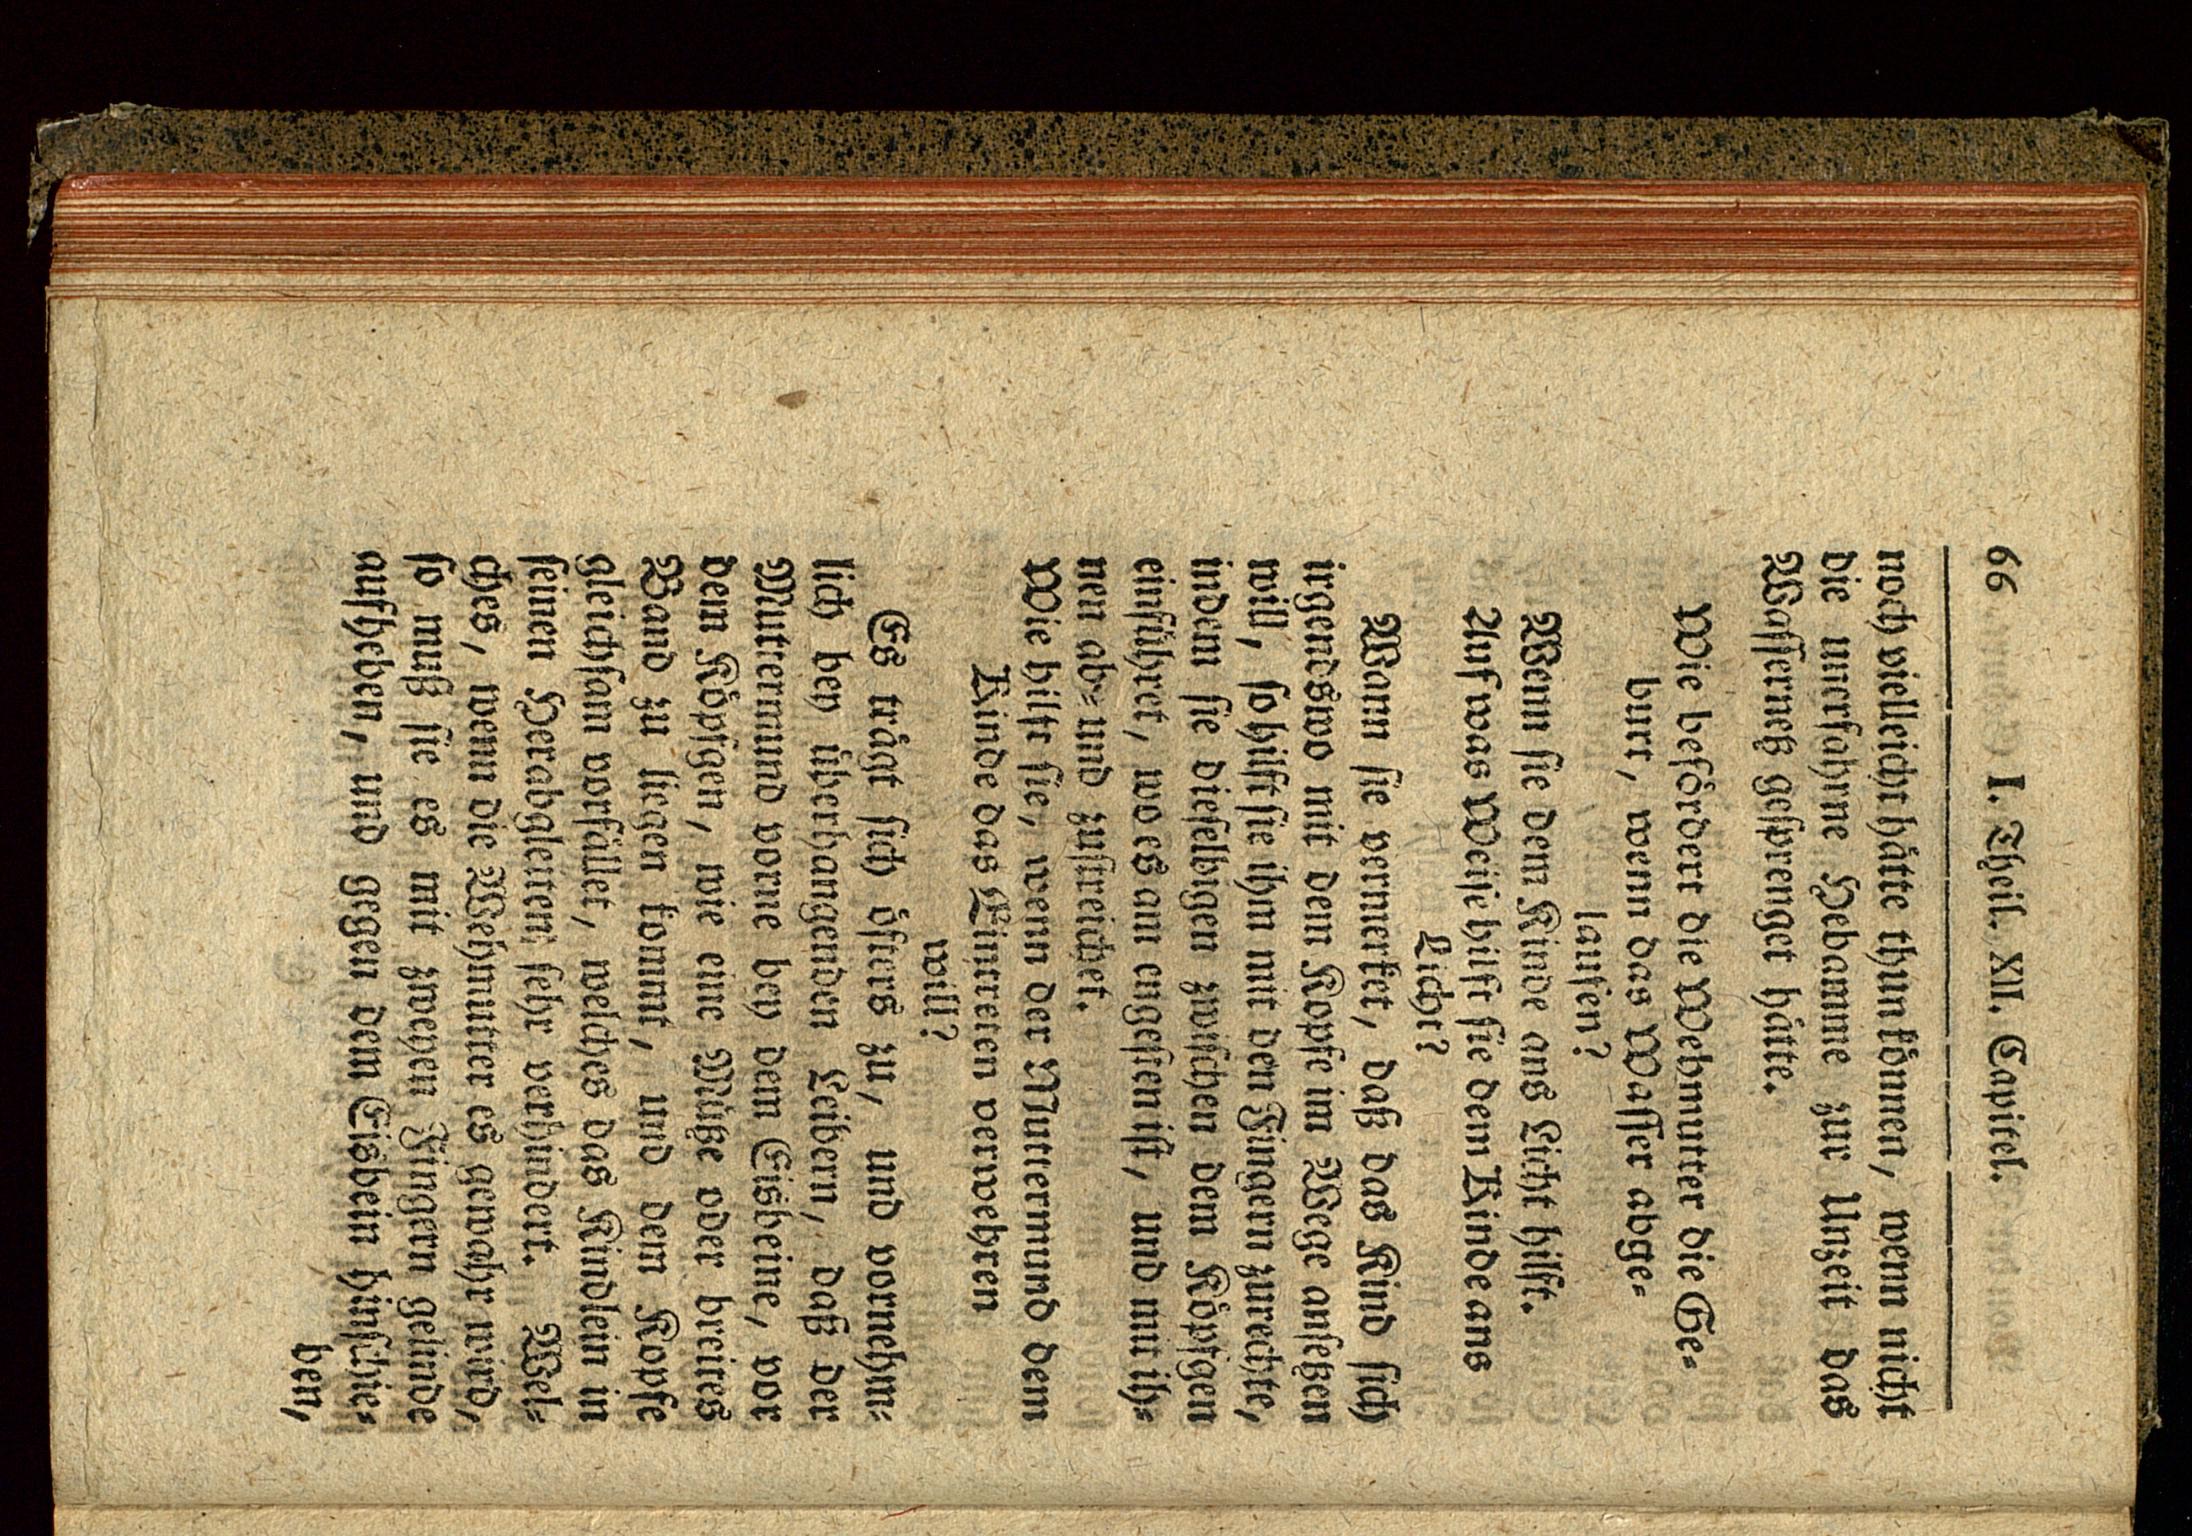 66 I. Theil. XII. Capitel.
noch vielleicht hätte thun können, wenn nicht
die unerfahrne Hebamme zur Unzeit das
Wasserneß gesprenget hätte.
Wie befördert die Wehmutter die Ge-
burt, wenn das Wasser abge-
laufen?
Wenn sie dem Kinde ans Licht hilfft.
Auf was Weise hilft sie dem Kinde ans
Licht?
Wann sie vermerket, daß das Kind sich
irgendswo mit dem Kopfe im Wege ansetzen
will, so hilft sie ihm mit den Fingern zurechte,
indem sie dieselbigen zwischen dem Köpfgen
einführet, wo es am engesten ist, und mit ih-
nen ab- und zustreichet.
Wie hilft sie, wenn der Muttermund dem
Kinde das Eintreten verwehren
will?
Es trägt sich öfters zu, und vornehm-
lich bey überhangenden Leibern, daß der
Muttermund vorne bey dem Eisbeine, vor
dem Köpfgen, wie eine Mütze oder breites
Band zu liegen kommt, und dem Kopfe
gleichsam vorfället, welches das Kindlein in
seinen Herabgleiten sehr verhindert. Wel-
ches, wenn die Wehmutter es gewahr wird,
so muß sie es mit zweyen Fingern gelinde
aufheben, und gegen dem Eisbein hinschie-
ben,